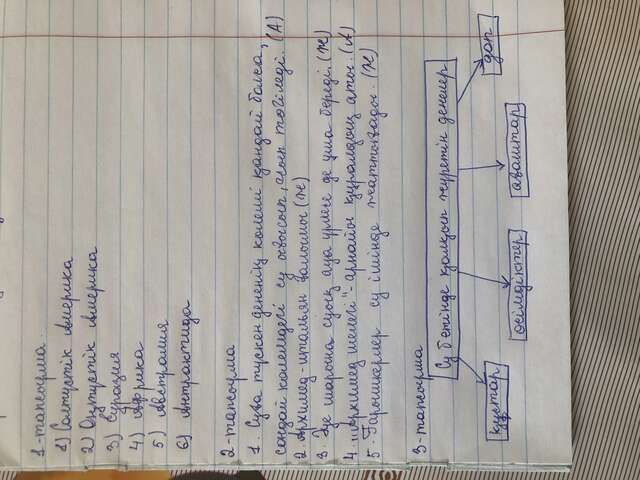 1-тапсырма
1) Солтүстік Америка
2) Оңтүстік Америка
3) Еуразия
4) Африка
5) Австралия
6) Антрактида
2-тапсырма
1. Суға түскен дененің көлемі қандай болса,
сондай көлемдегі су ығысып, асып төгіледі. (А)
2 Архимед-италиян ғалымы (ж)
3 Әуе шарына суық ауа үрлесе де ұша береді. (ж)
4 "Архимед шегі" - арнайы құрылғының аты. (А)
5 Ғарышкерлер су ішінде жаттығады. (ж)
3-тапсырма
Су бетінде қалқып жүретін денелер
құстар
өсімдіктер
ағаштар
доп